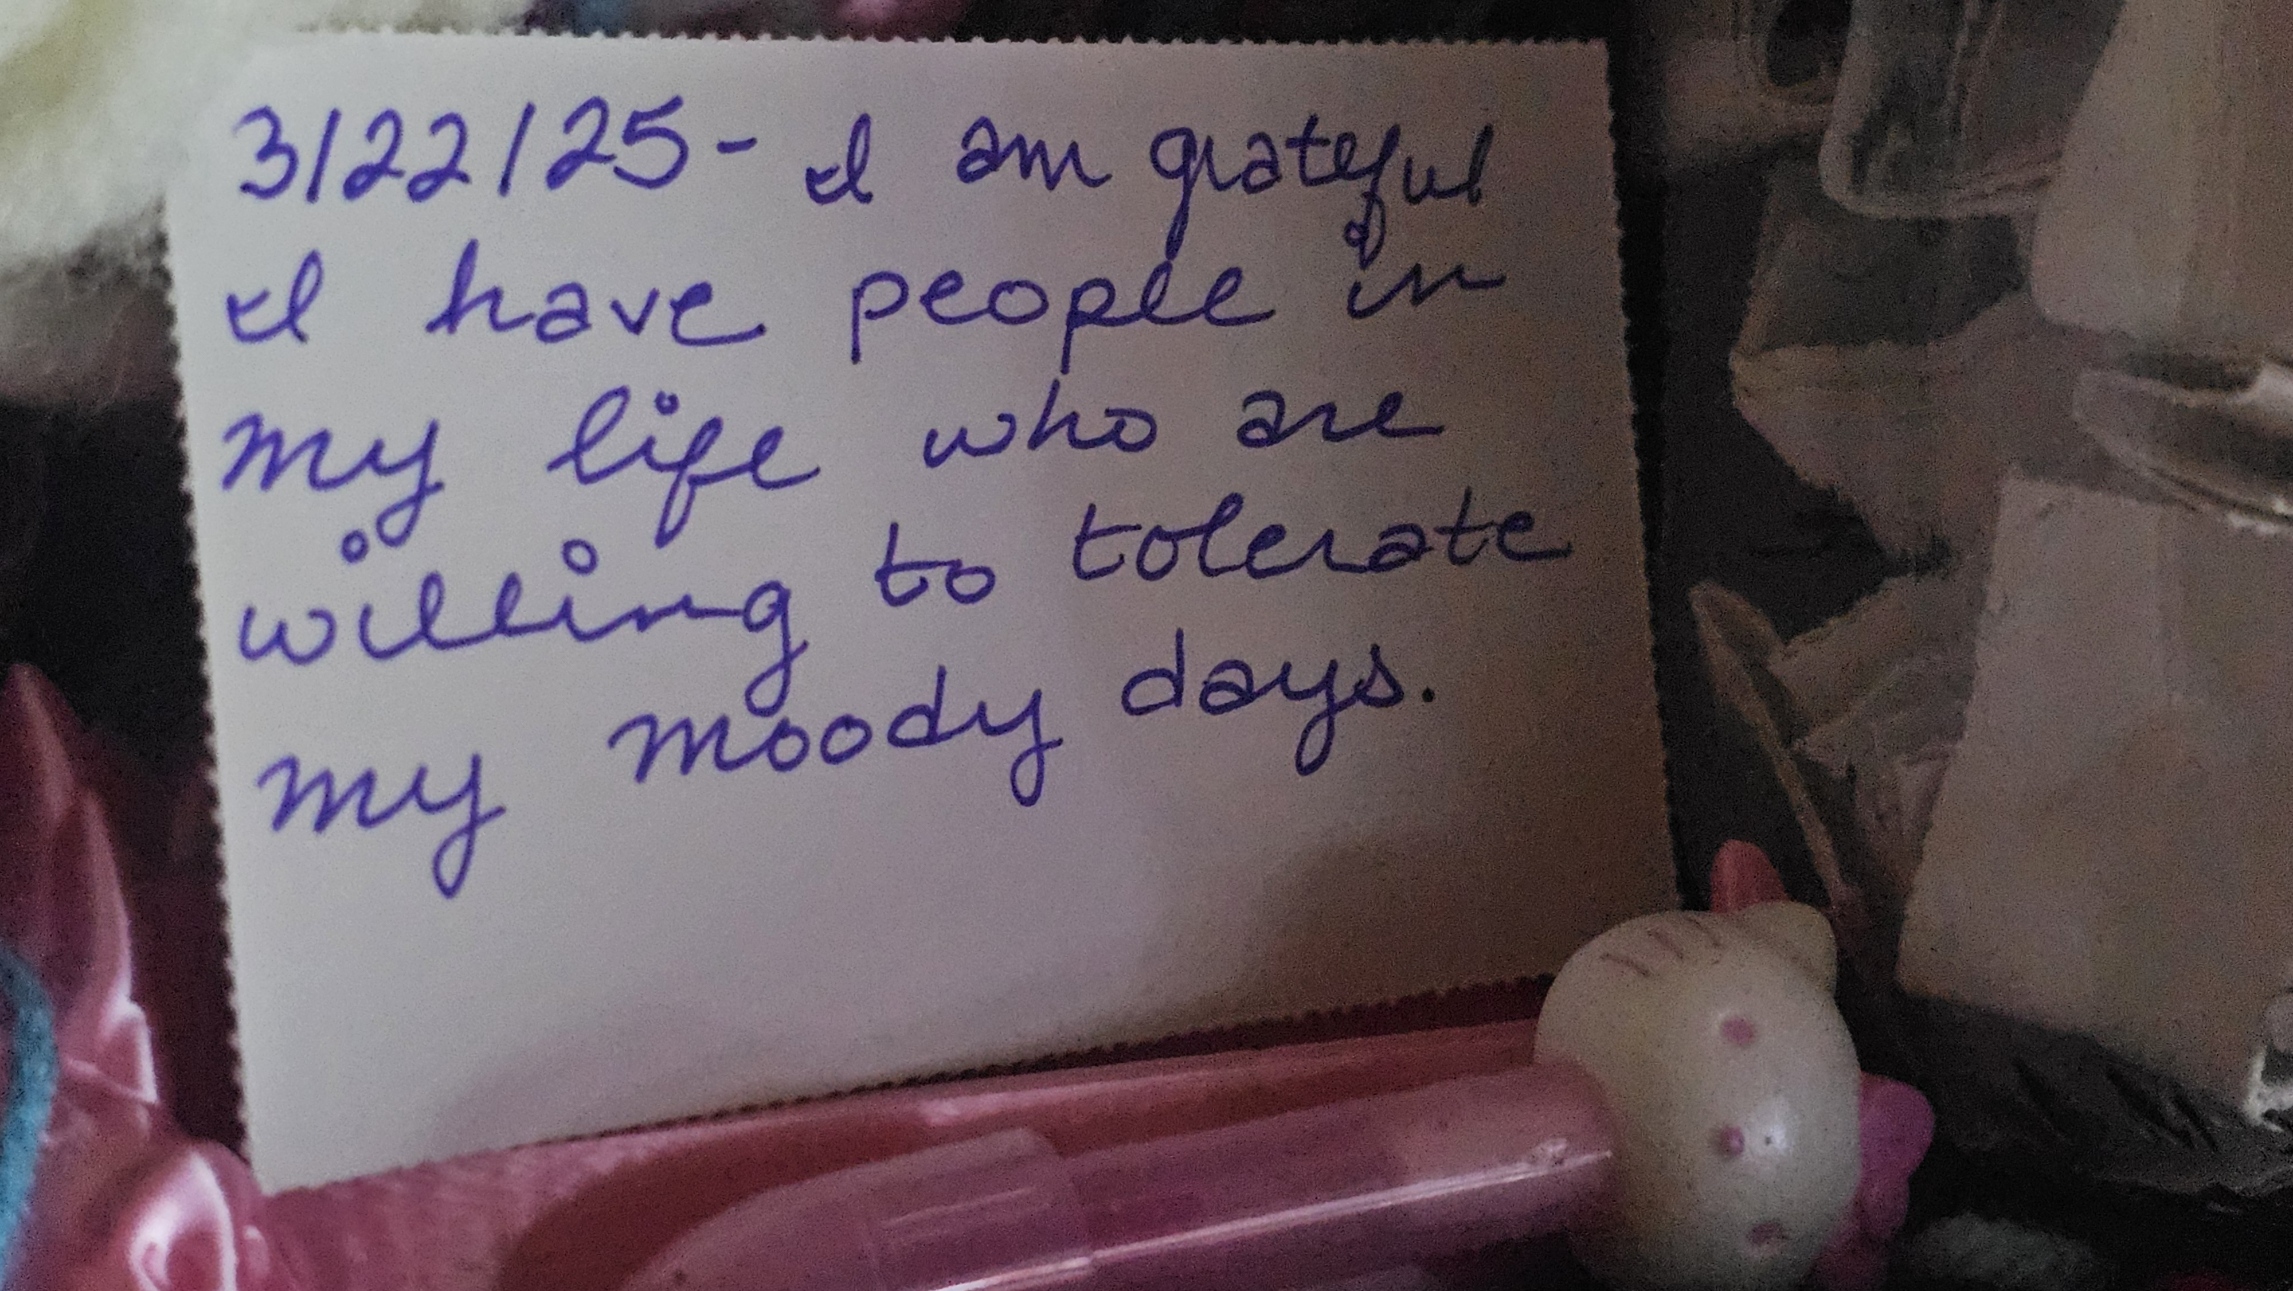 3/22/25- I am grateful
I have people in
my life who are
willing to tolerate
my moody days.